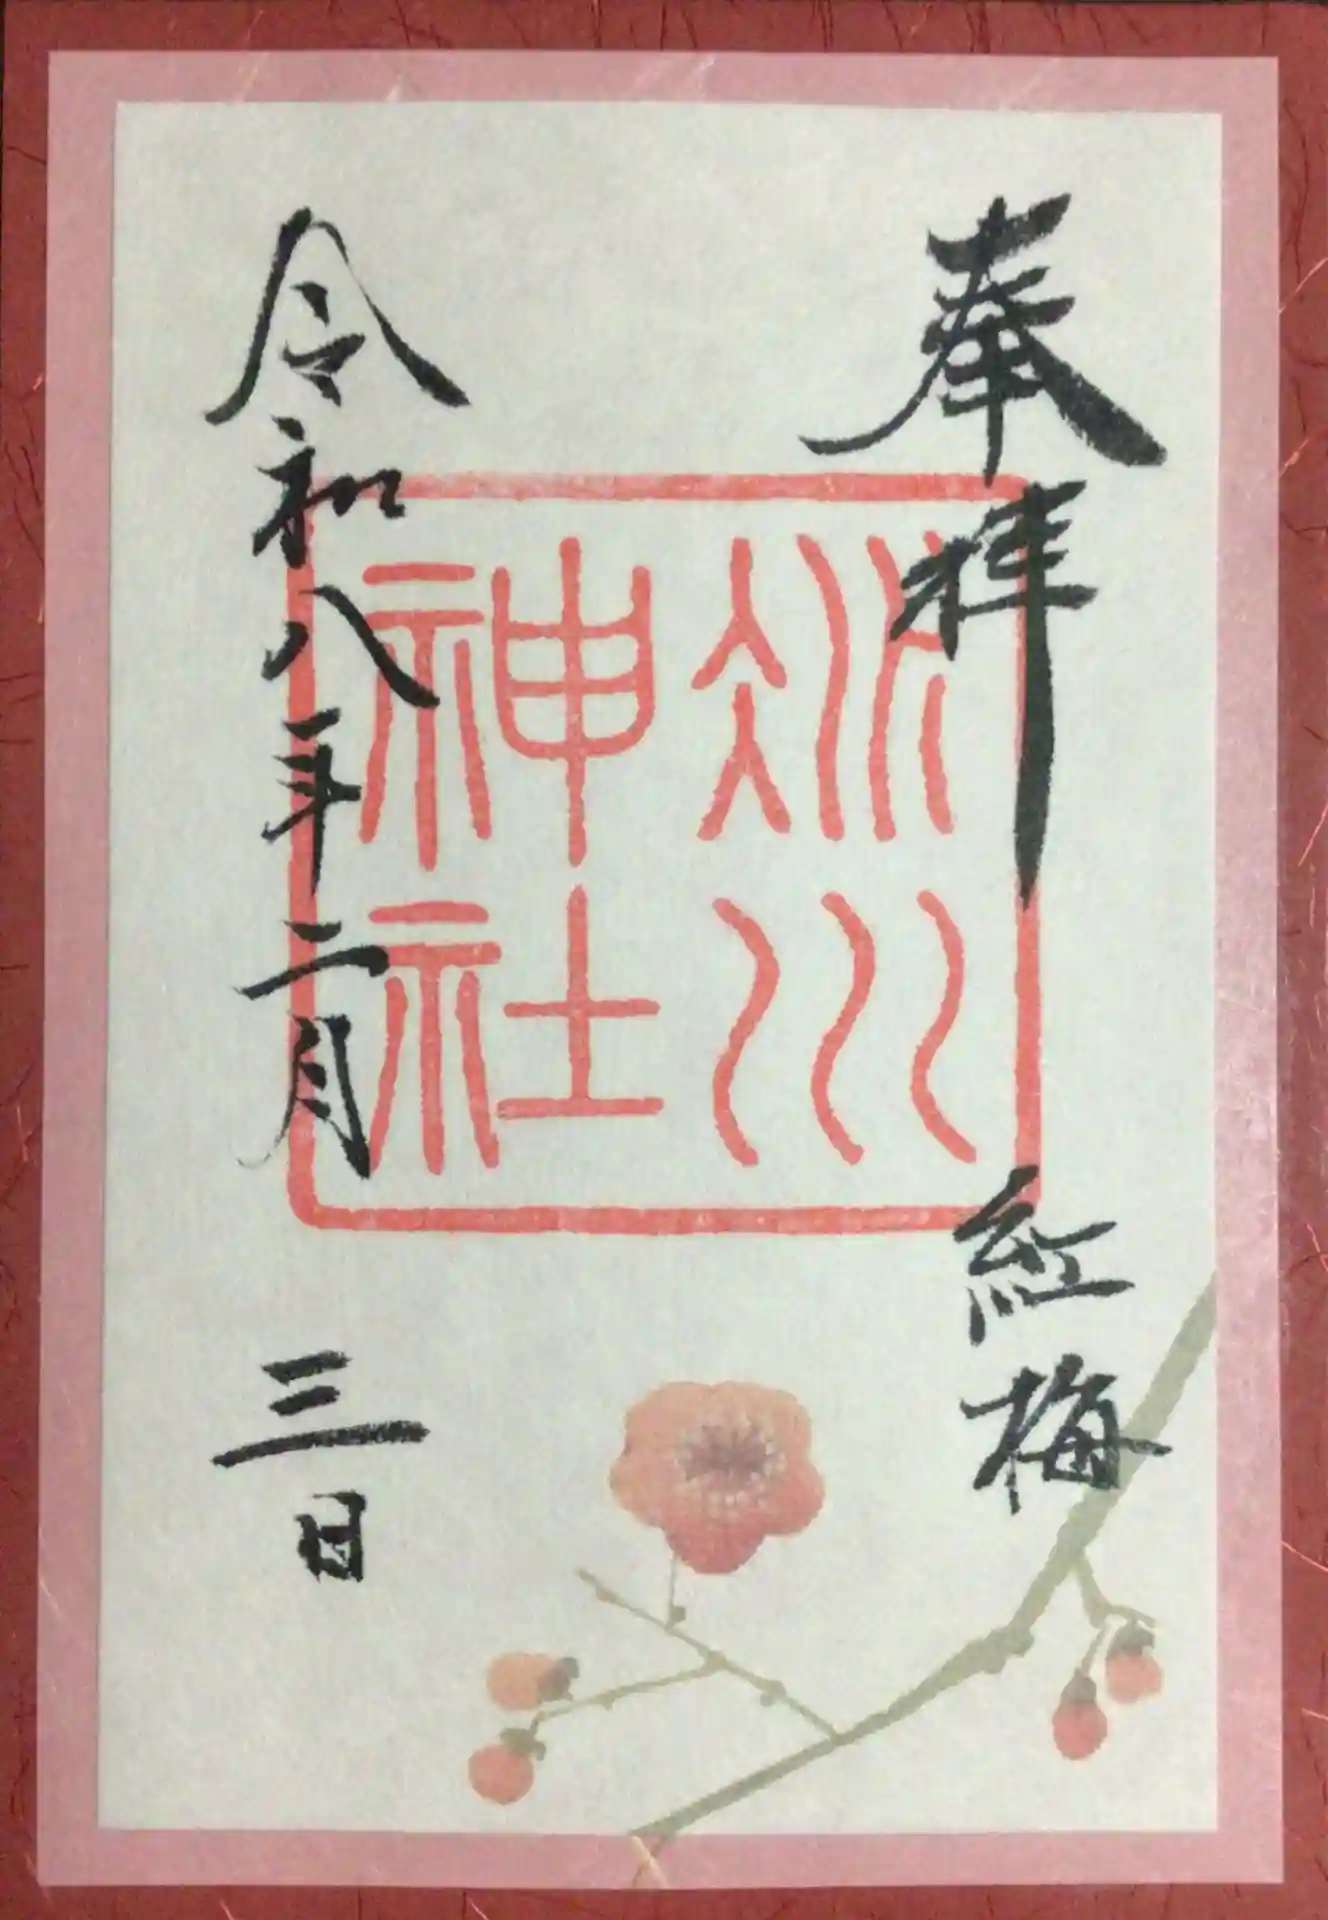 奉拝
紅梅
冰川
神社
令和八年二月三日